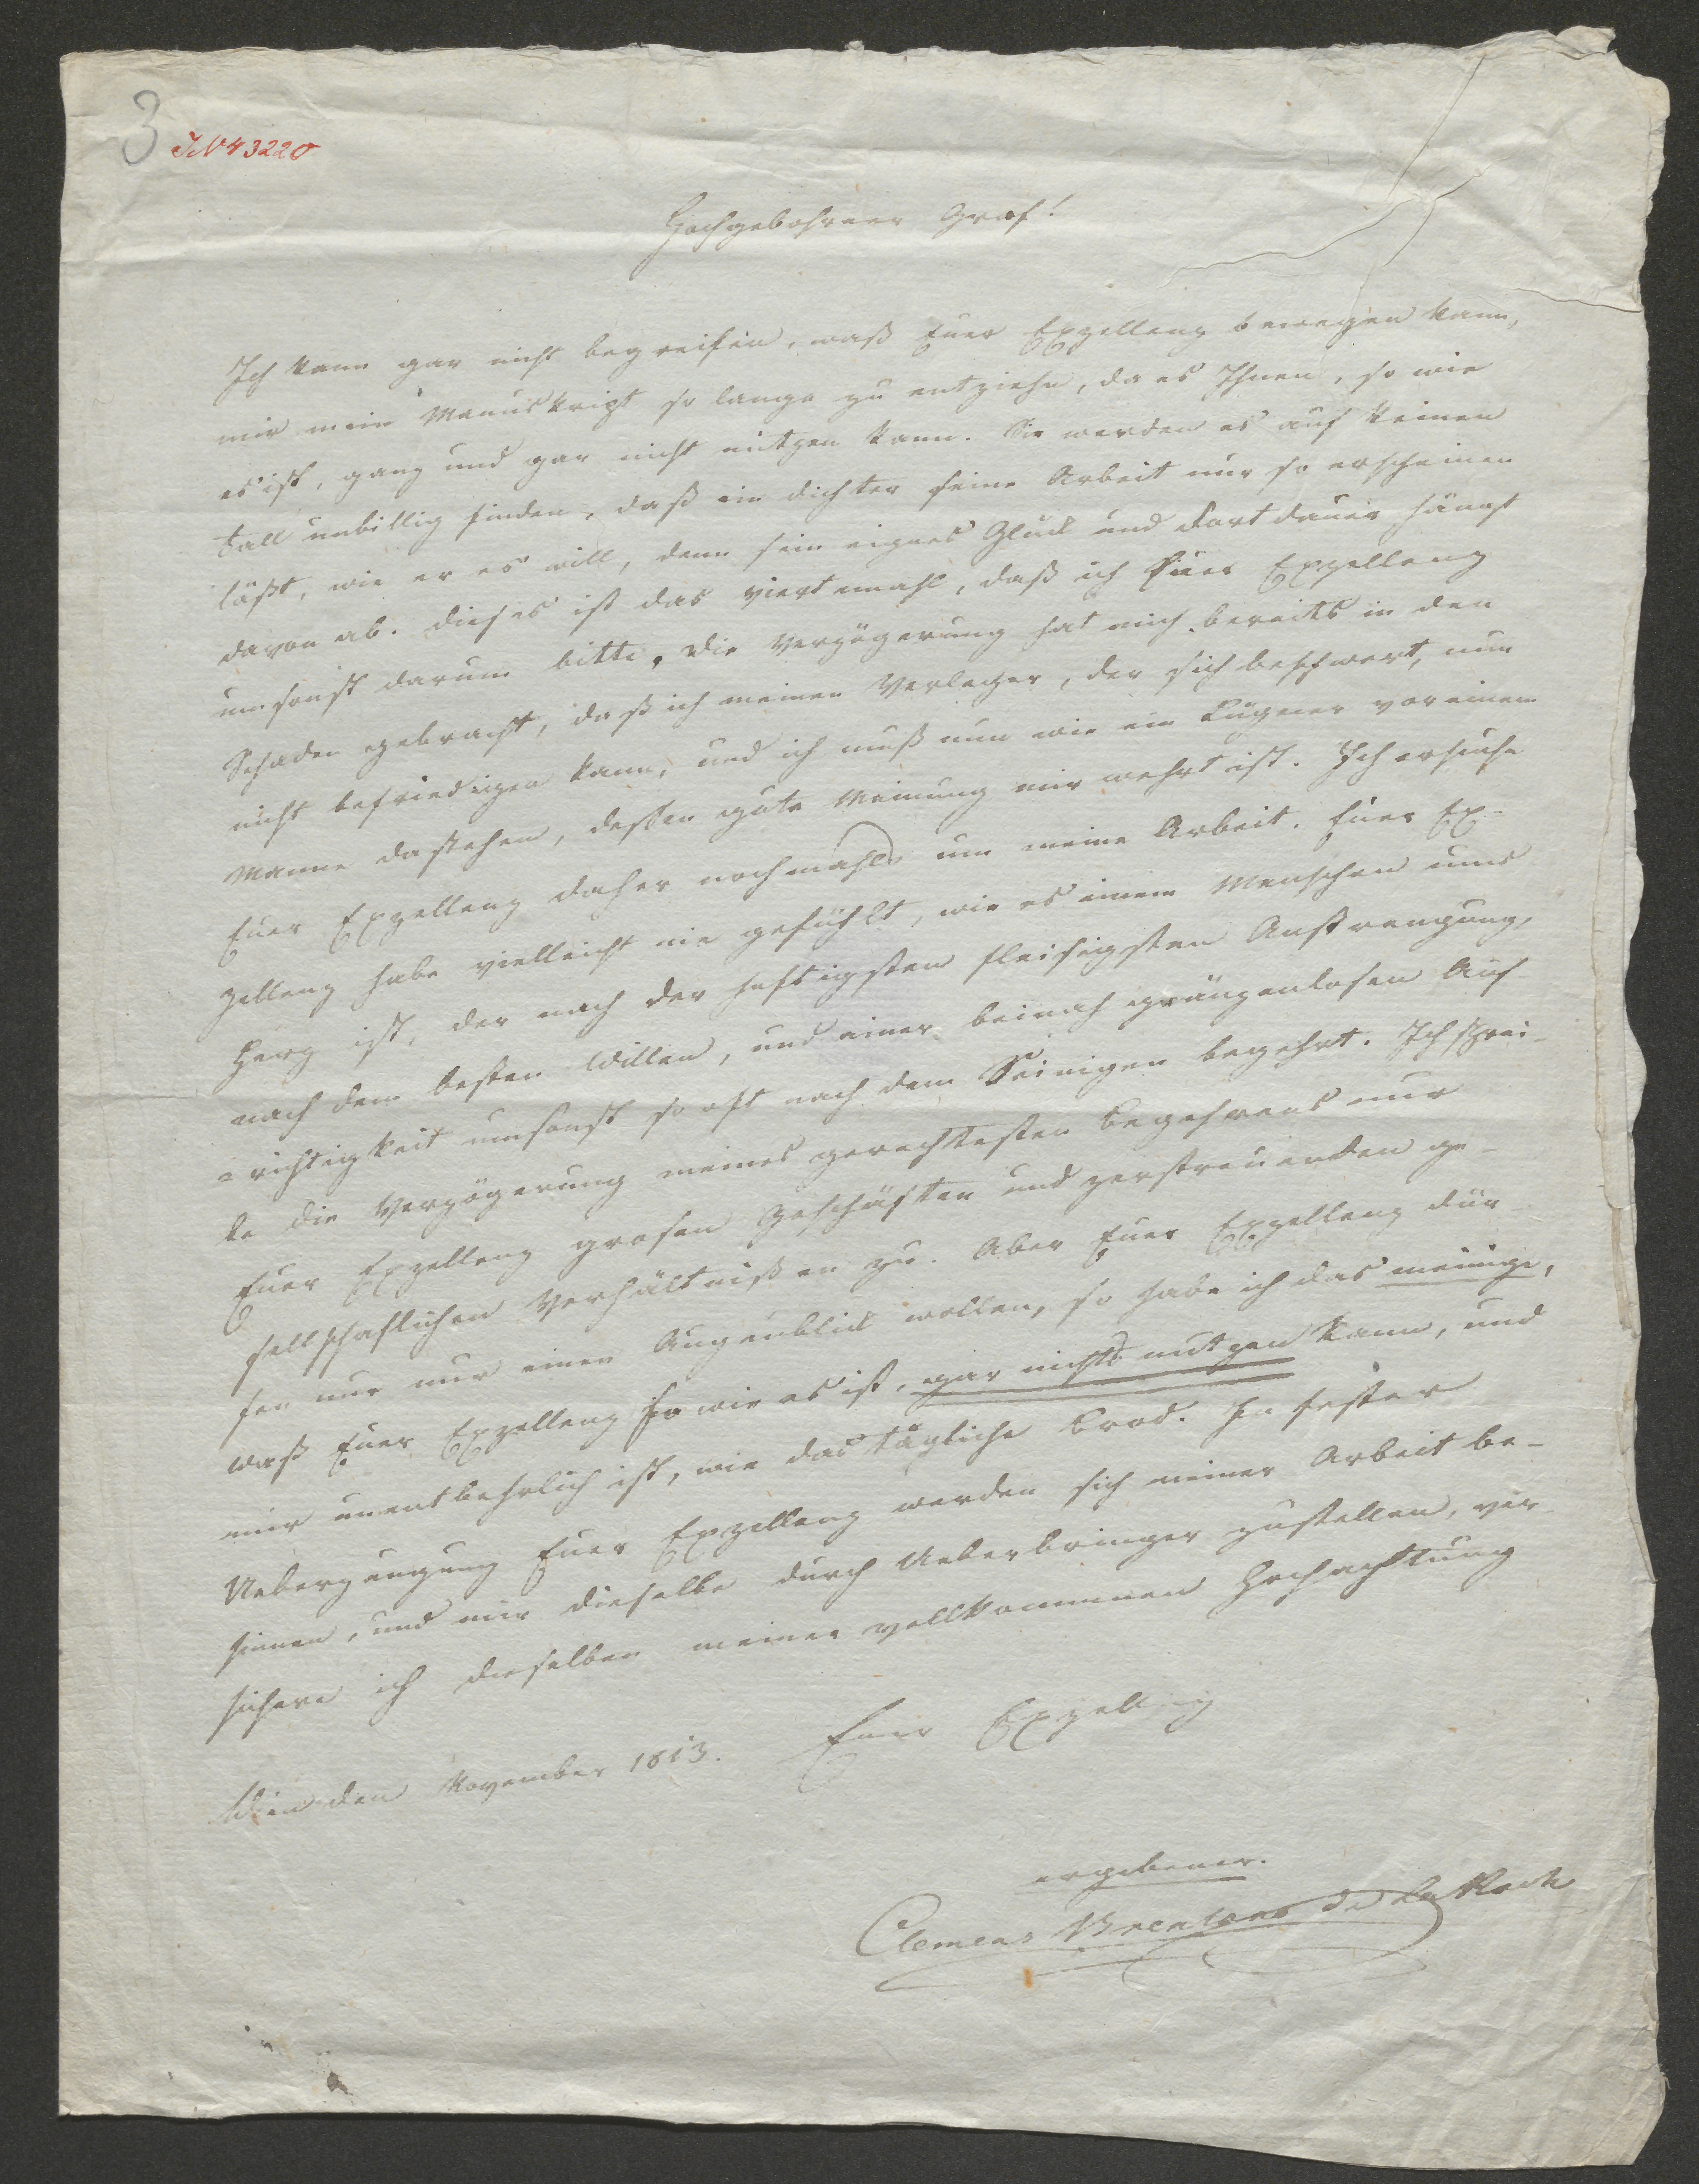 3 IN 43220
Hochgebohrner Graf!
Ich kann gar nicht begreifen, waß Euer Exzellenz bewegen kann,
mir mein Manuskript so lange zu entziehn, da es Ihnen, so wie
es ist, ganz und gar nicht nützen kann. Sie werden es auf keinen
Fall unbillig finden, daß ein Dichter seine Arbeit nur so erscheinen
läßt, wie er es will, denn sein eignes Glück und Fortdauer hängt
davon ab. Dieses ist das viertemahl, daß ich Euer Exzellenz
umsonst darum bitte, die Verzögerung hat mich bereits in den
Schaden gebracht, daß ich meinen Verleger, der sich beschwert, nun
nicht befriedigen kann, und ich muß nun wie ein Lügner vor einem
Manne dastehen, dessen gute Meinung mir wehrt ist. Ich ersuche
Euer Exzellenz daher nochmahls um meine Arbeit. Euer Ex-
zellenz habe vielleicht nie gefühlt, wie es einem Menschen ums
Herz ist, der nach der heftigsten fleisigsten Anstrengung,
nach dem besten Willen, und einer beinah gränzenlosen Auf
=richtigkeit umsonst so oft nach dem Seinigen begehrt. Ich schrei-
be die Verzögerung meines gerechtesten Begehrens nur
Euer Exzellenz grosen Geschäften und zerstreuenden ge-
sellschaftlichen Verhältnißen zu. Aber Euer Exzellenz dür-
fen nur nur einen Augenblick wollen, so habe ich das meinige,
waß Euer Exzellenz so wie es ist, gar nichts nützen kann, und
mir unentbehrlich ist, wie das tägliche Brod. In fester
Ueberzeugung Euer Exzellenz werden sich meiner Arbeit be-
sinnen, und mir dieselbe durch Ueberbringer zustellen, ver-
sichere ich dieselben meiner vollkommnen Hochachtung
Wien den November 1813. Euer Exzellenz
ergebener.
Clemens Brentano de La Roche